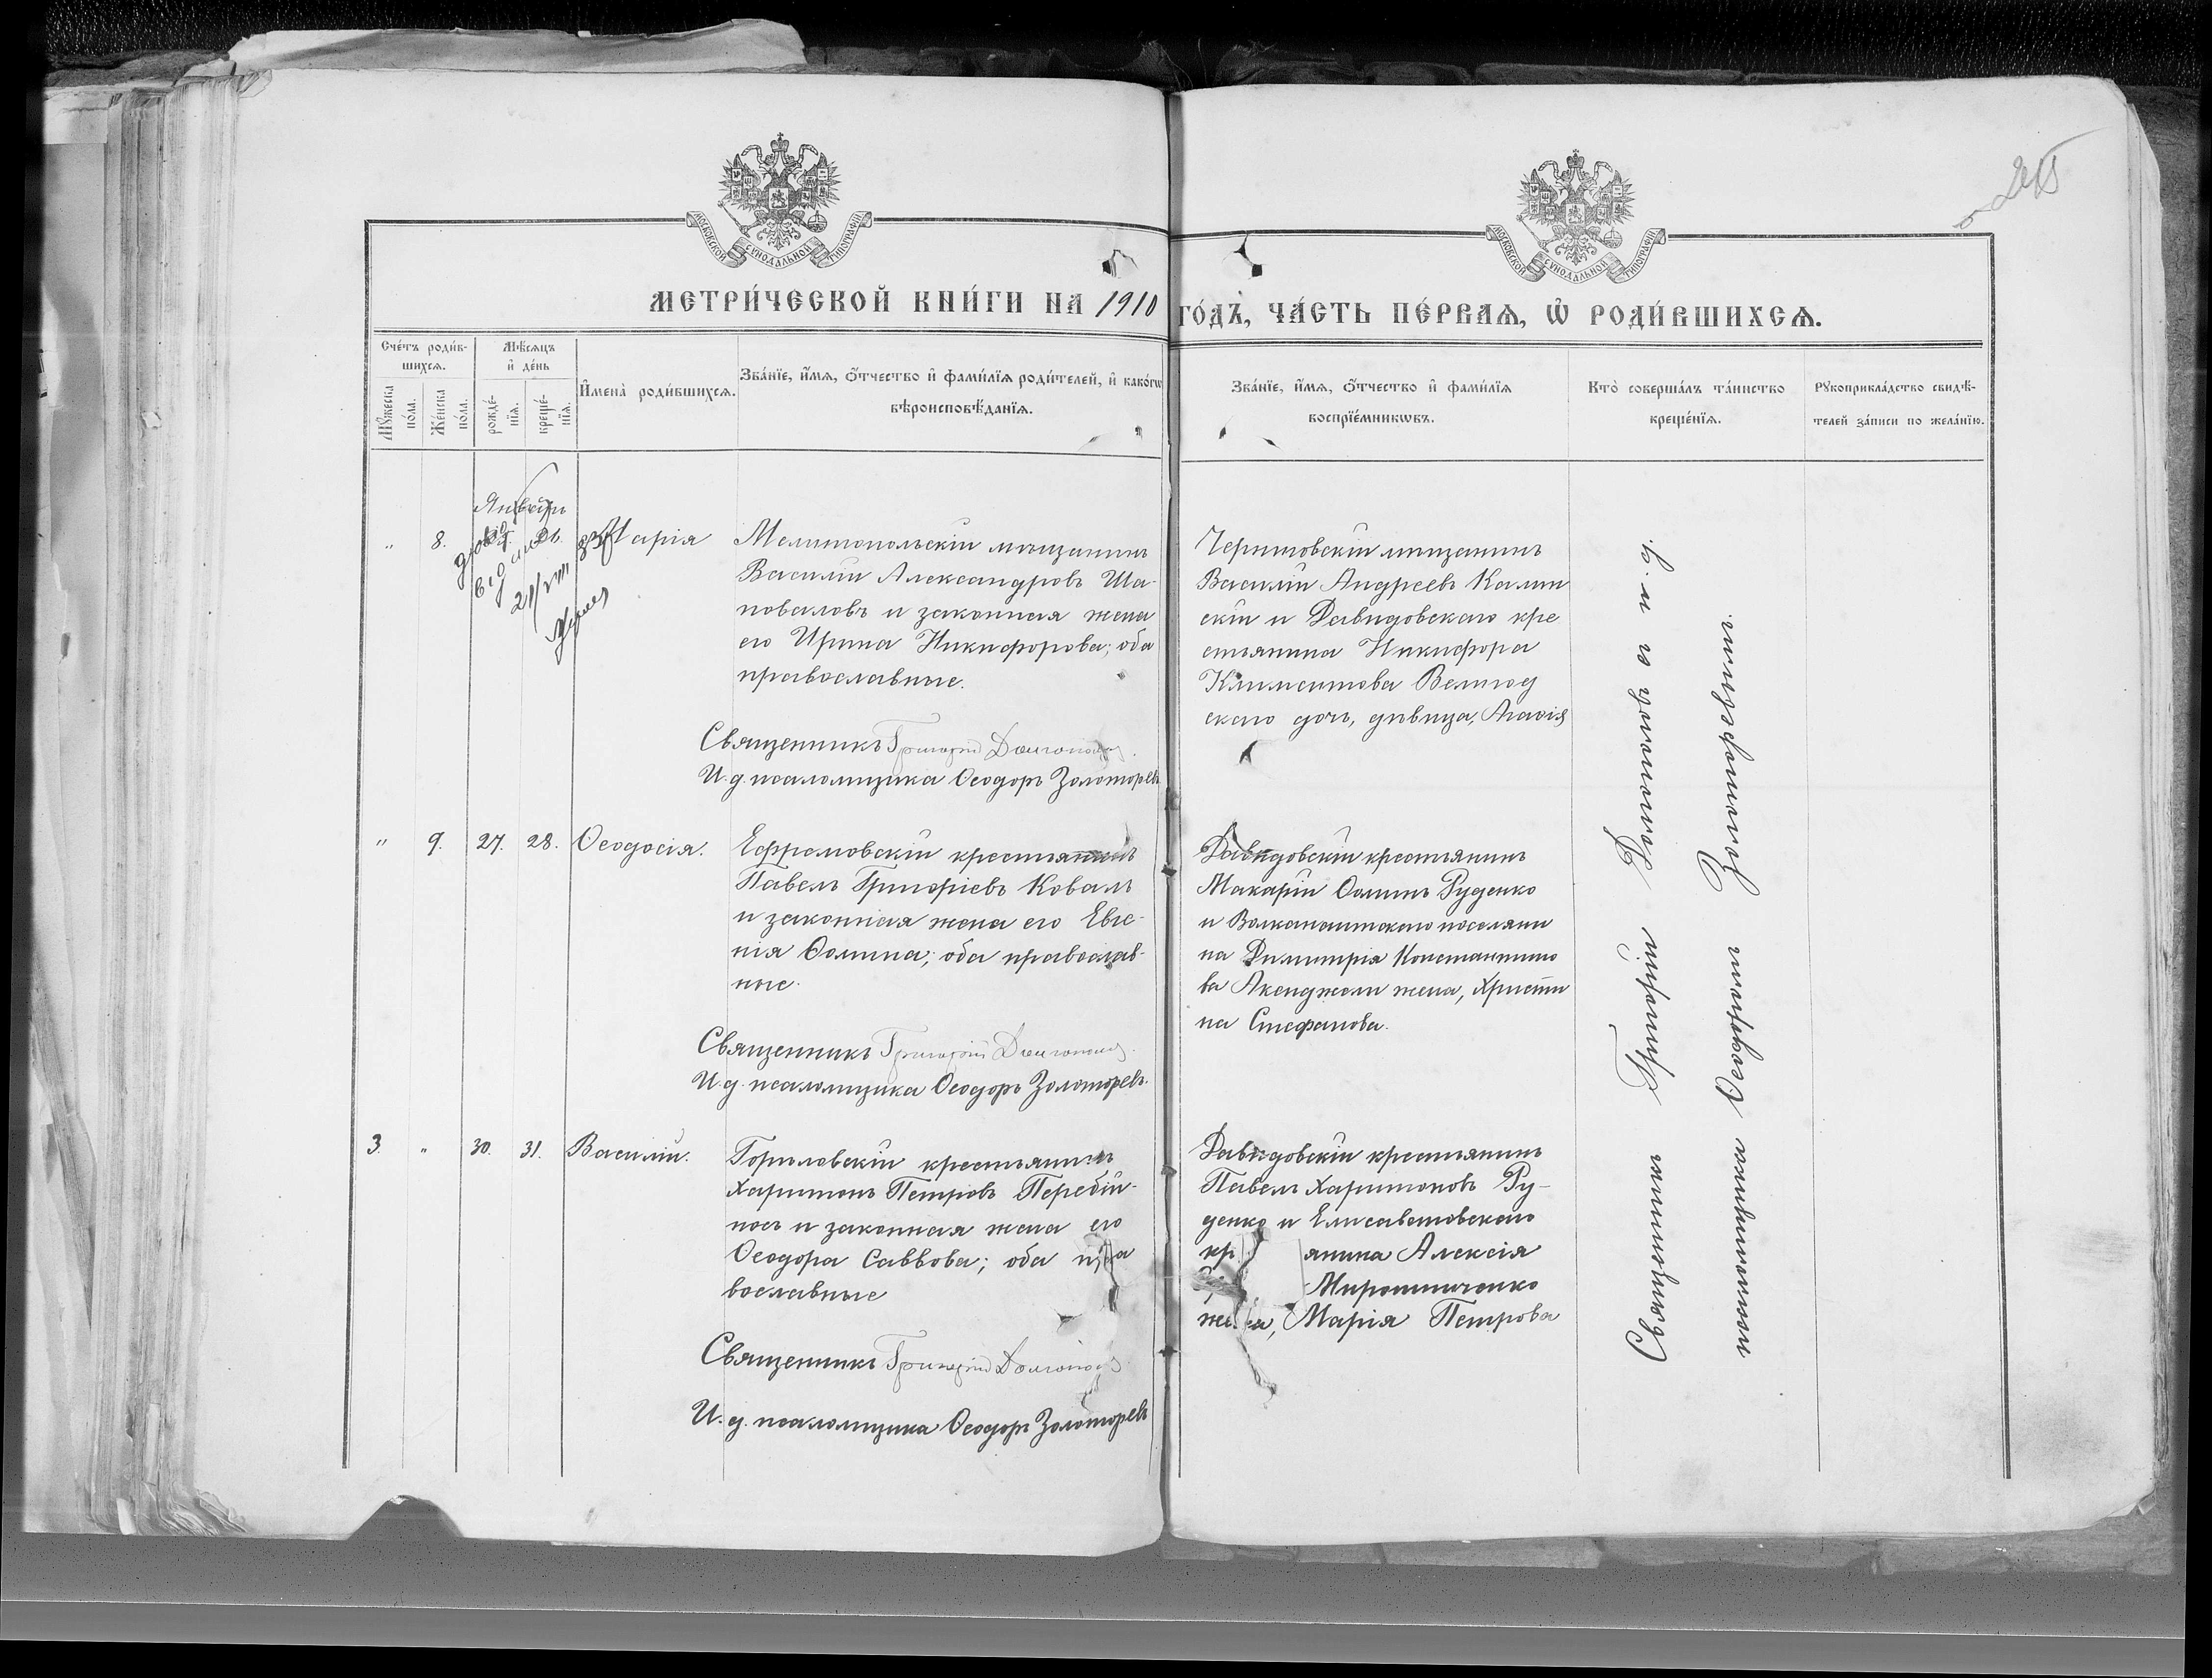 МОСКОВСКОЙ СУНОДАЛЬНОЙ ТИПОГРАФІИ
МОСКОВСКОЙ СУНОДАЛЬНОЙ ТИПОГРАФІИ
МЕТРИ́ЧЕСКОЙ КНИ́ГИ НА 1910 ГО́ДЪ, ЧА́СТЬ ПЕ́РВАѦ, Ѡ҆ РОДИ́ВШИХСѦ.
Сче́тъ роди́в-
шихсѧ.
Мꙋ́жеска
по́ла.
Же́нска
по́ла.
Мѣ́сѧцъ
и҆ де́нь
рожде́-
нїѧ.
креще́-
нїѧ.
И҆мена̀ роди́вшихсѧ.
Зва́нїе, и҆́мѧ, ѻ҆́тчество и҆ фами́лїѧ роди́телей, и҆ како́гѡ
вѣроисповѣ́данїѧ.
Зва́нїе, и҆́мѧ, ѻ҆́тчество и҆ фами́лїѧ
воспрїе́мникѡвъ.
Кто̀ соверша́лъ та́инство
креще́нїѧ.
Рꙋкоприкла́дство свидѣ́-
телей за́писи по жела́нїю.
Январь
" 8. Марія
Мелитопольскій мѣщанинъ
Василій Александровъ Ша-
поваловъ и законная жена
его Ирина Никифорова; оба
православные.
Священникъ Григорій Долгополовъ.
И. д. псаломщика Ѳеодоръ Золоторевъ
Черниговскій мѣщанинъ
Василій Андреевъ Калин
скій и Давидовскаго кре
стьянина Никифора
Климентова Велигод
скаго дочь, дѣвица, Агаѳія
" 9. 27. 28. Ѳеодосія.
Ефремовскій крестьянинъ
Павелъ Григоріевъ Коваль
и законная жена его Евге-
нія Ѳомина; оба православ-
ные.
Священникъ Григорій Долгополовъ.
И. д. псаломщика Ѳеодоръ Золоторевъ.
Давидовскій крестьянинъ
Макарій Ѳоминъ Руденко
и Волканештскаго поселяни
на Димитрія Константино
ва Акенджели жена, Христи
на Стефанова.
3. " 30. 31. Василій.
Горѣловскій крестьянинъ
Харитонъ Петровъ Перебій-
носъ и законная жена его
Ѳеодора Саввова; оба пра
вославные
Священникъ Григорій Долгополовъ
И. д. псаломщика Ѳеодоръ Золоторевъ
Давидовскій крестьянинъ
Павелъ Харитоновъ Ру-
денко и Елисаветовскаго
кр янина Алексія
Мирошниченко
жена, Марія Петрова
Священникъ Григорій Долгополовъ и и. д.
псаломщика Ѳеодоръ Золоторевъ.